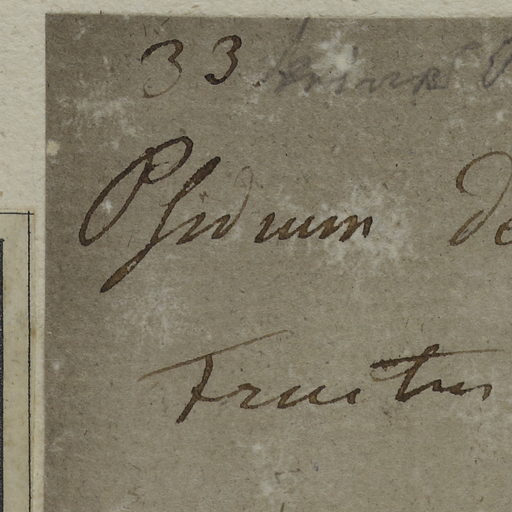 33
Psidium de
Fructus